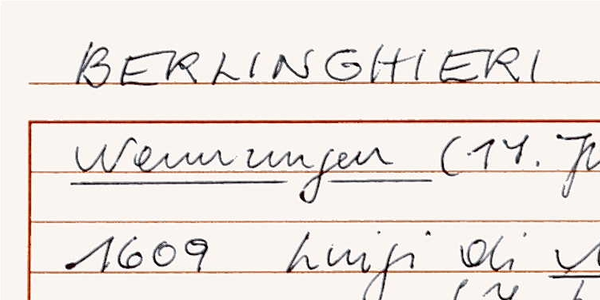 BERLINGHIERI
Nennungen (14. J
1609 Luigi di